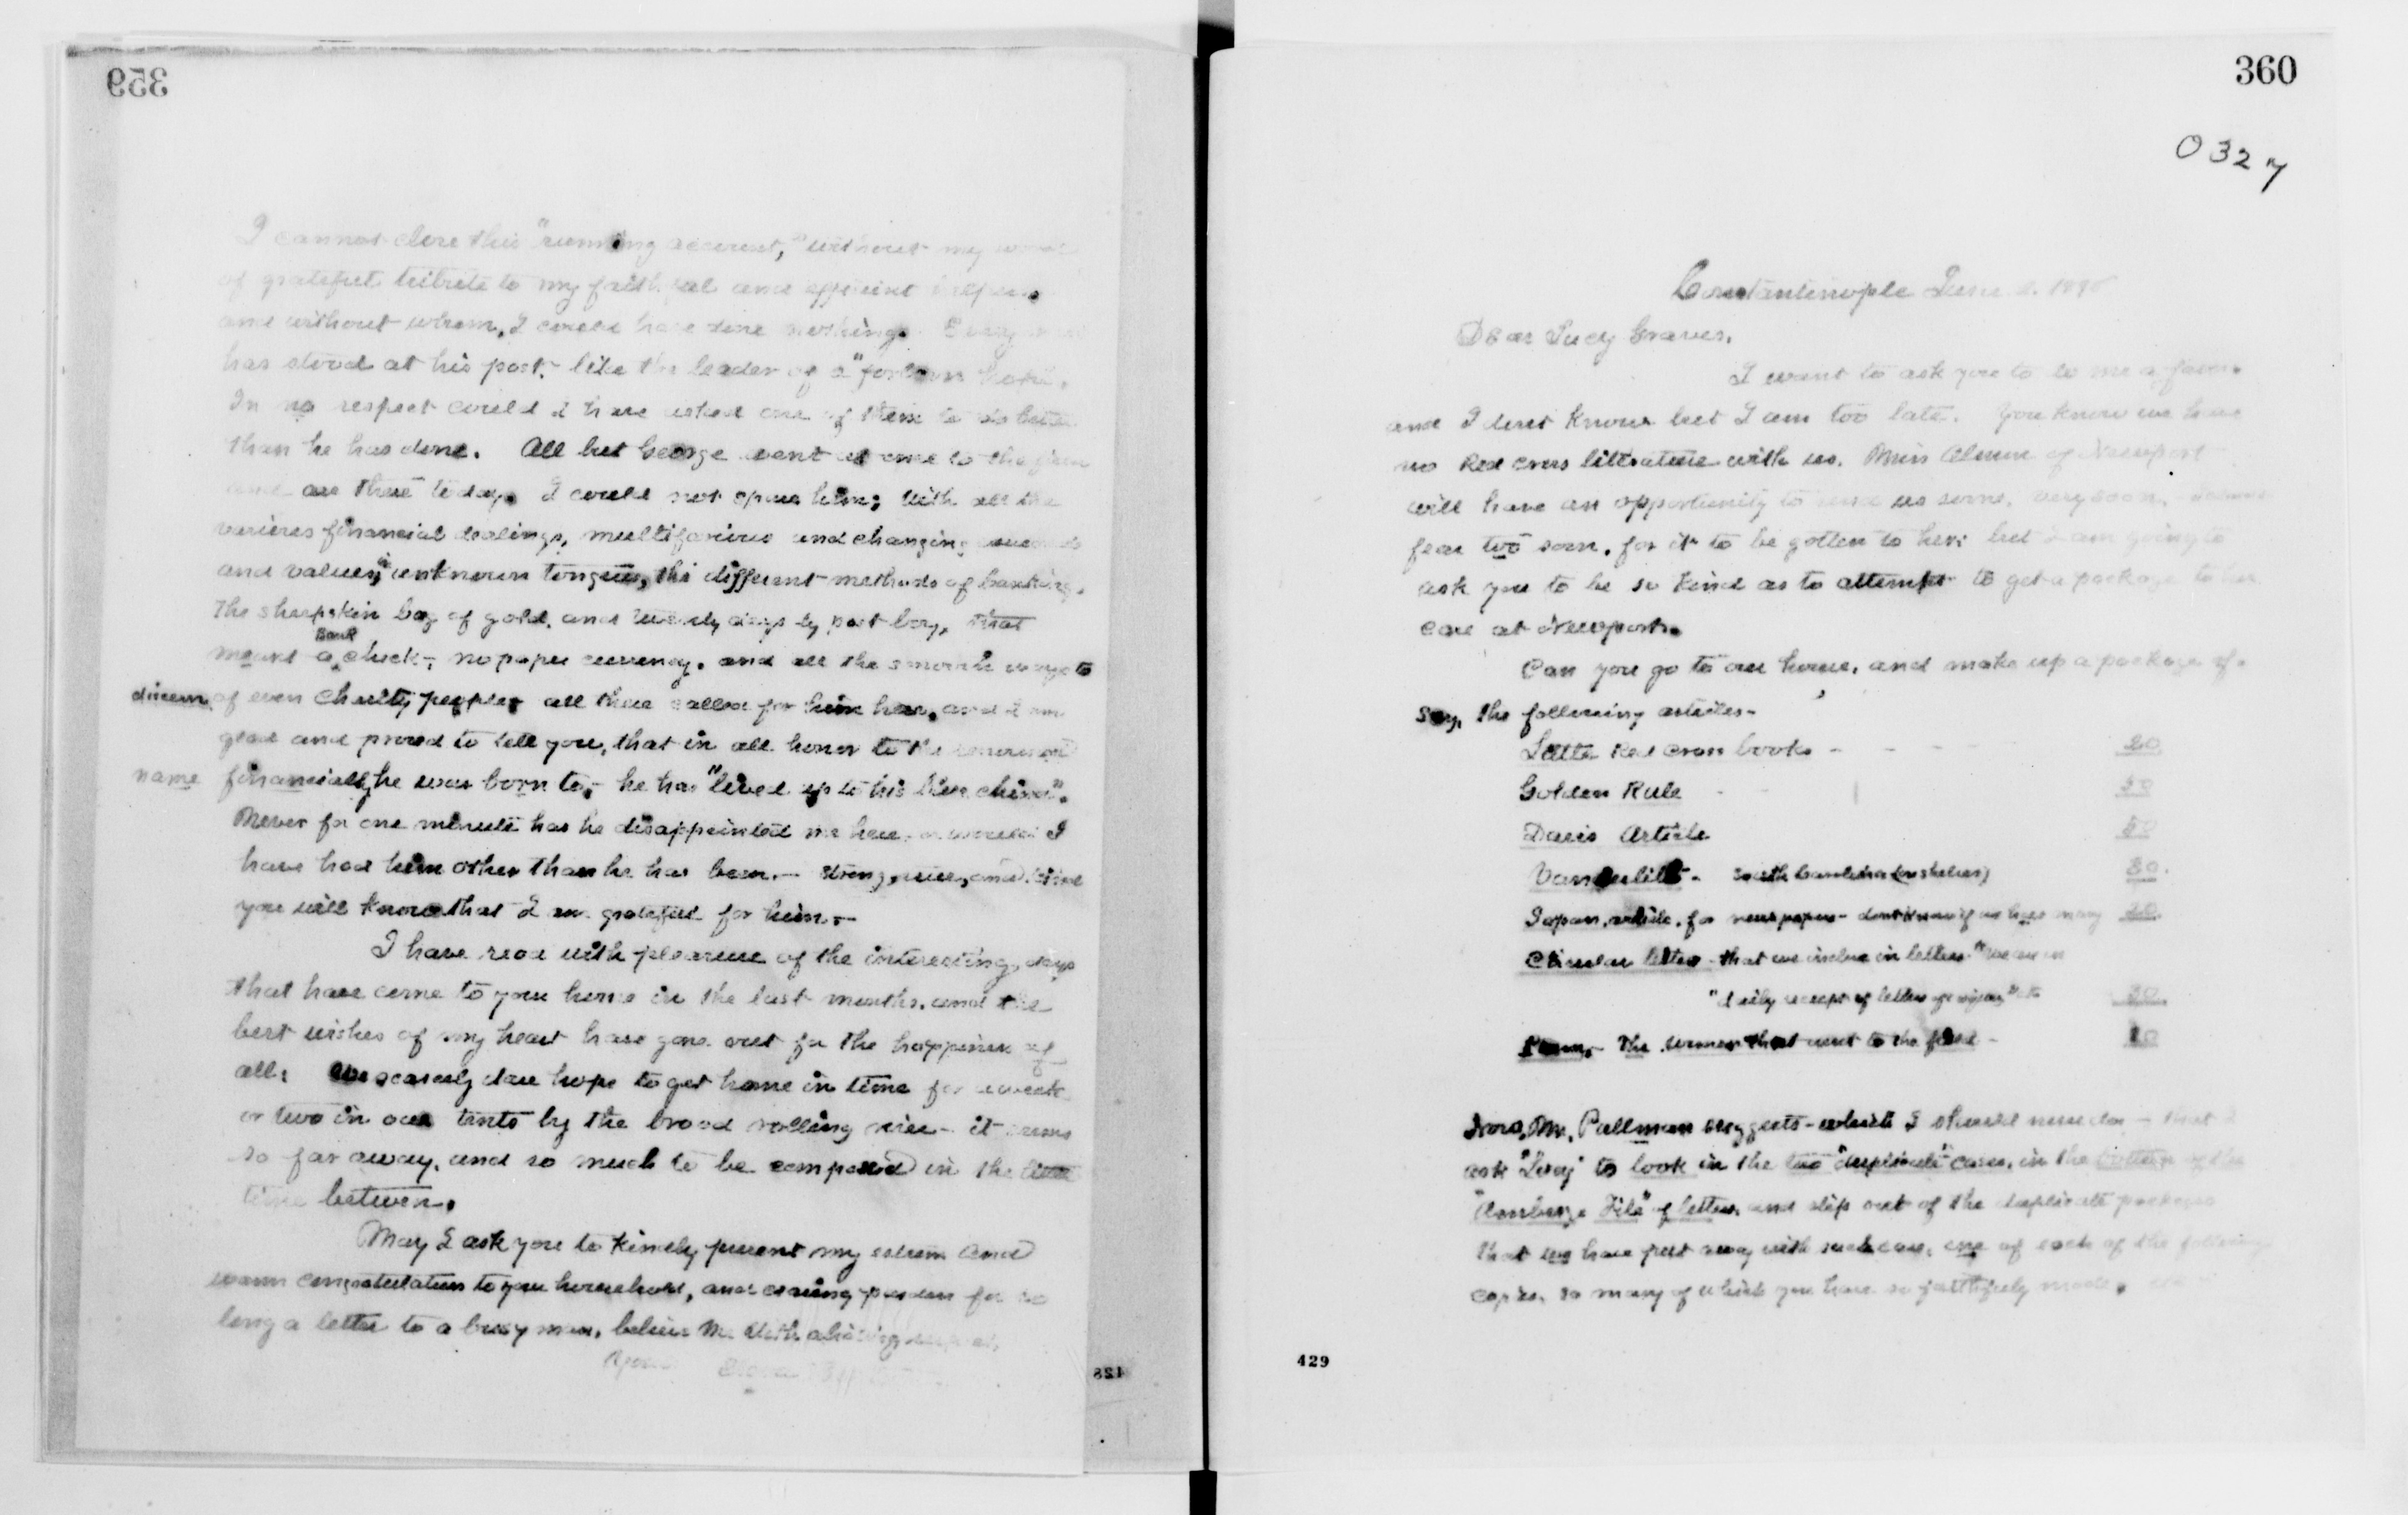 359
I cannot close this "running account," without my word
of grateful tribute to my faithful and efficient helpers
and without whom, I could have done nothing. Every
has stood at his post, like the leader of a "forlorn hope."
In no respect could I have asked one of them to do better
than he has done. All but George went at once to the
and are there today. I could not spare him; with all the
various financial dealings, multifarious and changing
and values, in unknown tongues, the different methods of banking,
The sheepskin bag of gold, and twenty days by post boy, that
means a Bank check, no paper currency, and all the smooth ways to
discern of even charity peoples all these called for him here, and I am
glad and proud to tell you, that in all honor to the renowned
name financially he was born to, he has "lived up to his blue china".
Never for one minute has he disappointed me here, or would I
have had him other than he has been. - strong, wise, and
you will know that I am grateful for him. -
I have read with pleasure of the interesting days
that have come to your home in the last months, and the
best wishes of my heart have gone out for the happiness of
all. We scarcely dare hope to get home in time for a week
or two in our tents by the broad rolling river - it seems
so far away, and so much to be compassed in the little
time between.
May I ask you to kindly present my esteem and
warm congratulations to your household, and craving pardon for so
long a letter to a busy man, believe me with abiding
Yours
428
360
0327
Constantinople June 2. 1896
Dear Lucy Graves.
I want to ask you to do me a favor.
and I dont know but I am too late. You know we have
no Red cross literature with us. Miss of Newport
will have an opportunity to send us some, very soon,
fear too soon, for it to be gotten to her: but I am going to
ask you to be so kind as to attempt to get a package to her
care at Newport.
Can you go to our house, and make up a package of.
Say, the following articles -
Little Red Cross books - - - -
Golden Rule - - 50
Davis Article 50
Vanderbilt - South Carolina 30.
Japan, article, for newspapers - dont know if we have many 20.
Circular letter - that we inclose in letters. "We are in
"daily receipt of letters of inquiry" etc 30.
Poem, - The women that went to the field - 10
Now, Mr. Pullman suggests - which I should never do - that I
ask "Lucy" to look in the two "duplicate" cases, in the bottom of the
File" of letters, and slip out of the duplicate packages
that we have put away with such care, one of each of the following
copies, so many of which you have so faithfully made,
429